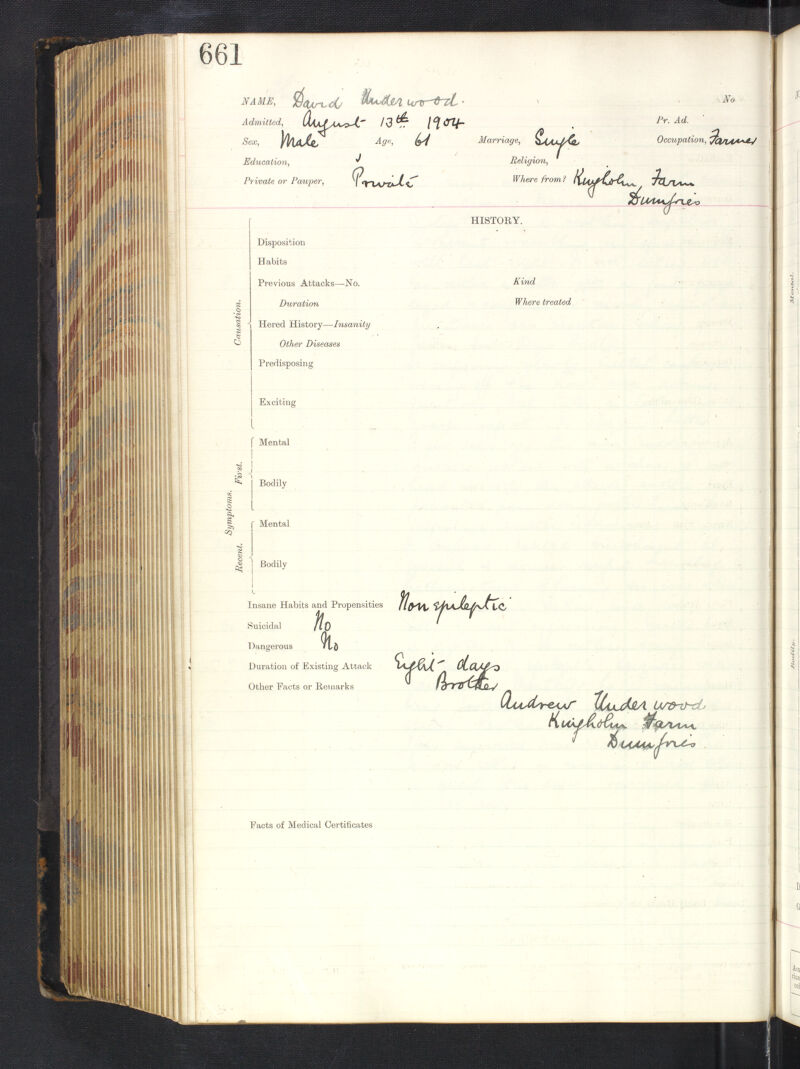 661
NAME, David Underwood. No
Admitted, August 13th 1904 Pr. Ad.
Sex, Male Age, 61 Marriage, Single Occupation, Farmer
Education, Religion,
Private or Pauper, Private Where from? Kingholm Farm
Dumfries
HISTORY.
Disposition
Habits
Previous Attacks—No. Kind
Duration Where treated
Causation.
Hered History—Insanity
Other Diseases
Predisposing
Exciting
Symptoms.
First.
Mental
Bodily
Recent.
Mental
Bodily
Insane Habits and Propensities Non epileptic
Suicidal No
Dangerous No
Duration of Existing Attack Eight days
Other Facts or Remarks Brother
Andrew Underwood
Kingholm Farm
Dumfries
Facts of Medical Certificates